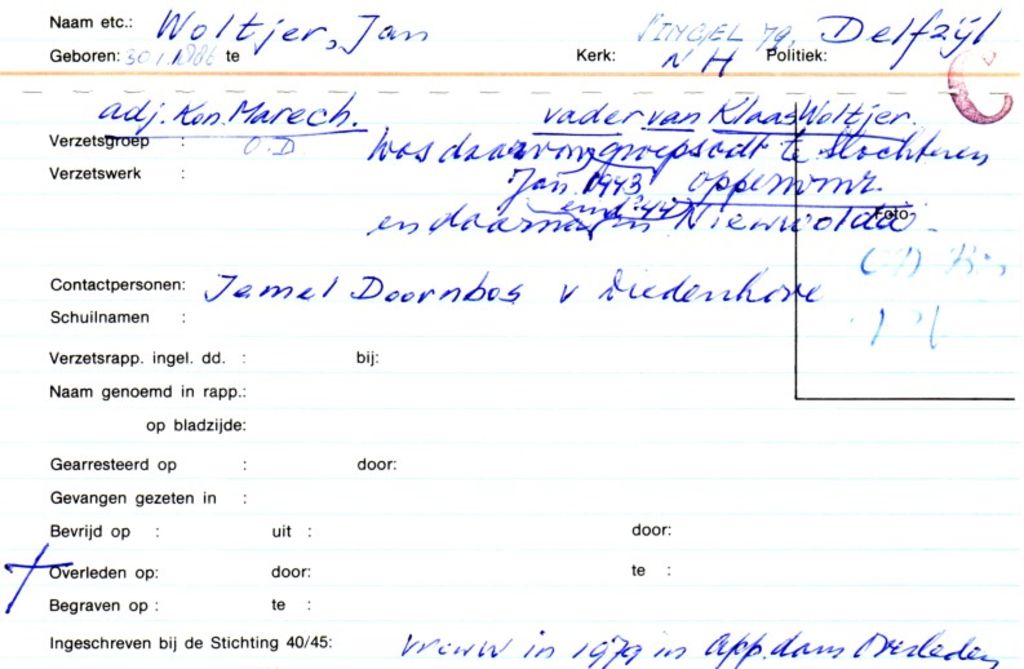 Naam etc.: Woltjer, Jan SINGEL 79, Delfzijl
Geboren: 30.1.1886 te Kerk: NH Politiek:
C
adj. Kon. Marech. vader van Klaas Woltjer.
Verzetsgroep : O.D Was daarvoor groepscdt te Slochteren
Verzetswerk : Jan 1943 opperwmr.
eind '44
en daarna in Nieuwolda Foto
Contactpersonen: Jamel Doornbos v Diedenhove
Schuilnamen :
Verzetsrapp. ingel. dd. : bij:
Naam genoemd in rapp.:
op bladzijde:
Gearresteerd op : door:
Gevangen gezeten in :
Bevrijd op : uit : door:
Overleden op: door: te :
Begraven op : te :
Ingeschreven bij de Stichting 40/45: vrouw in 1979 in App.dam Overleden